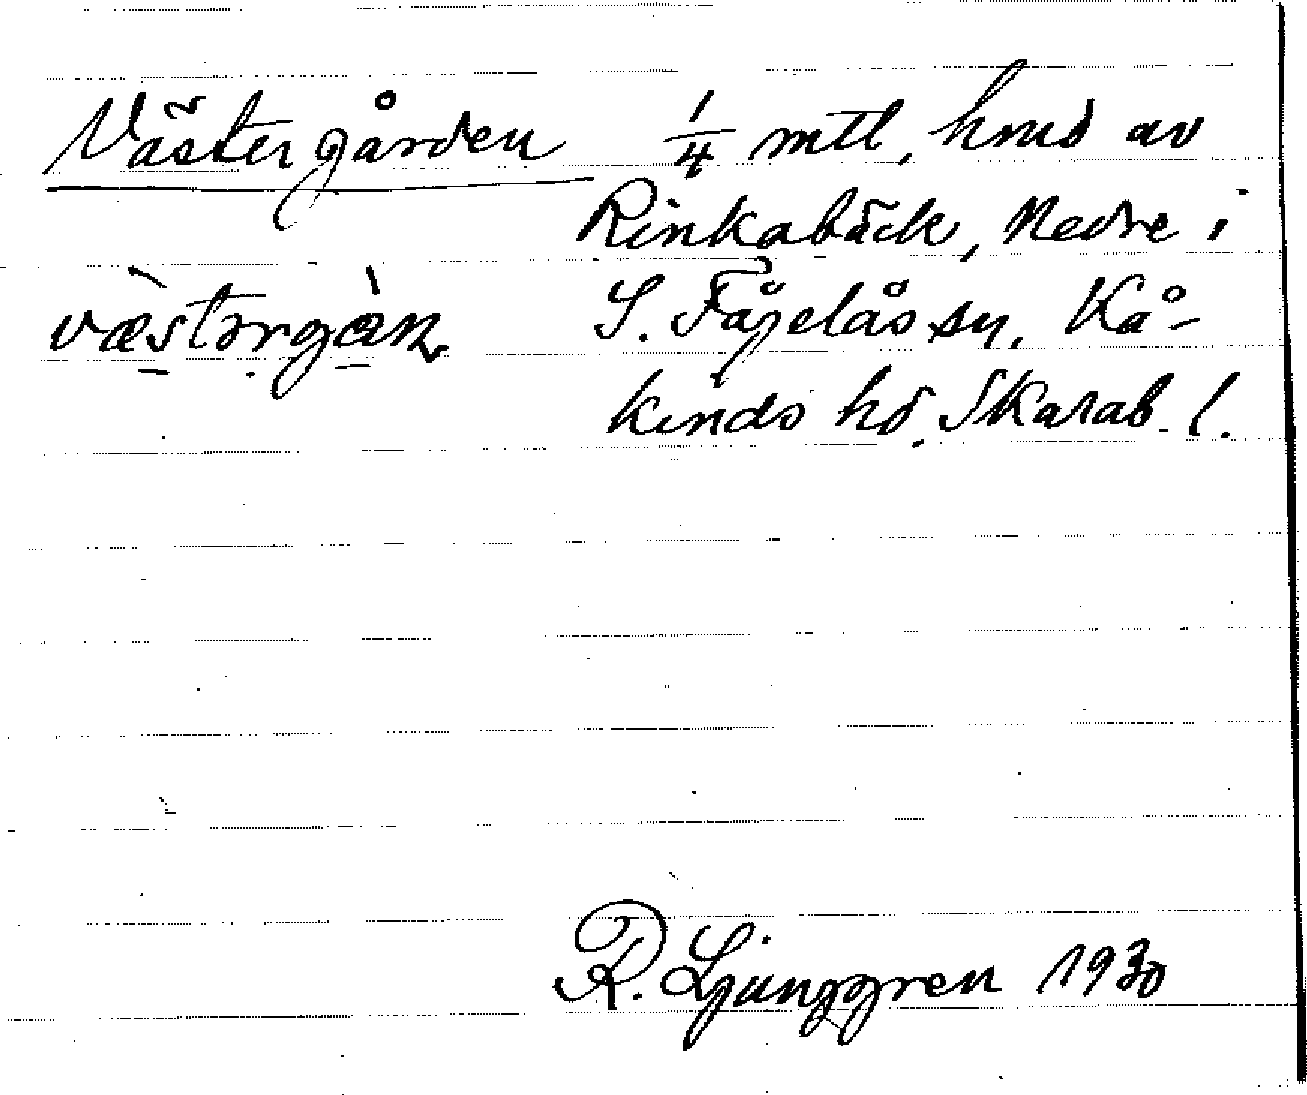 Västergården 1/4 mtl, hmd av
Rinkabäck, Nedre i
væstərgàn S. Fågelås sn, Kå-
kinds hd. Skarab. l.
R. Ljunggren 1930